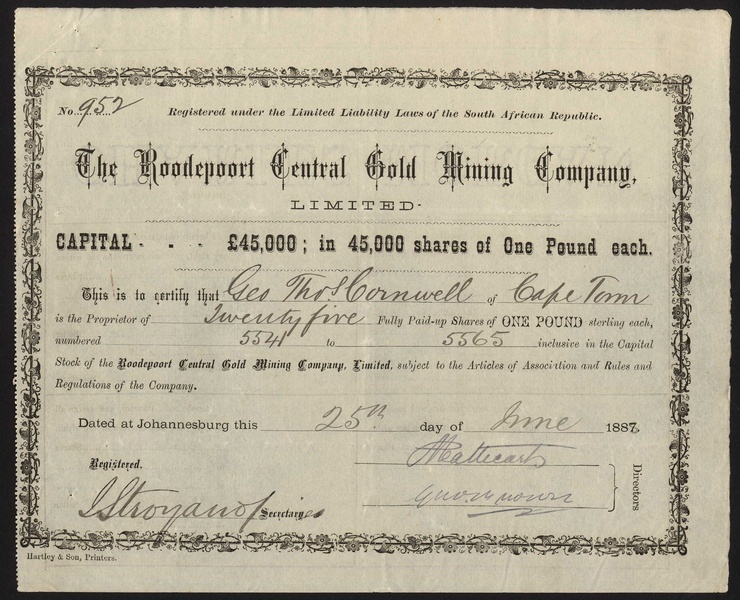 No. 952 Registered under the Limited Liability Laws of the South African Republic.
The Roodepoort Central Gold Mining Company,
LIMITED.
CAPITAL - - - £45,000; in 45,000 shares of One Pound each.
This is to certify that Geo Thos Cornwell of Cape Town
is the Proprietor of Twenty five Fully Paid-up Shares of ONE POUND sterling each,
numbered 5541 to 5565 inclusive in the Capital
Stock of the Roodepoort Central Gold Mining Company, Limited, subject to the Articles of Association and Rules and
Regulations of the Company.
Dated at Johannesburg this 25th day of June 1887.
Registered.
Secretary
Directors
Hartley & Son, Printers.